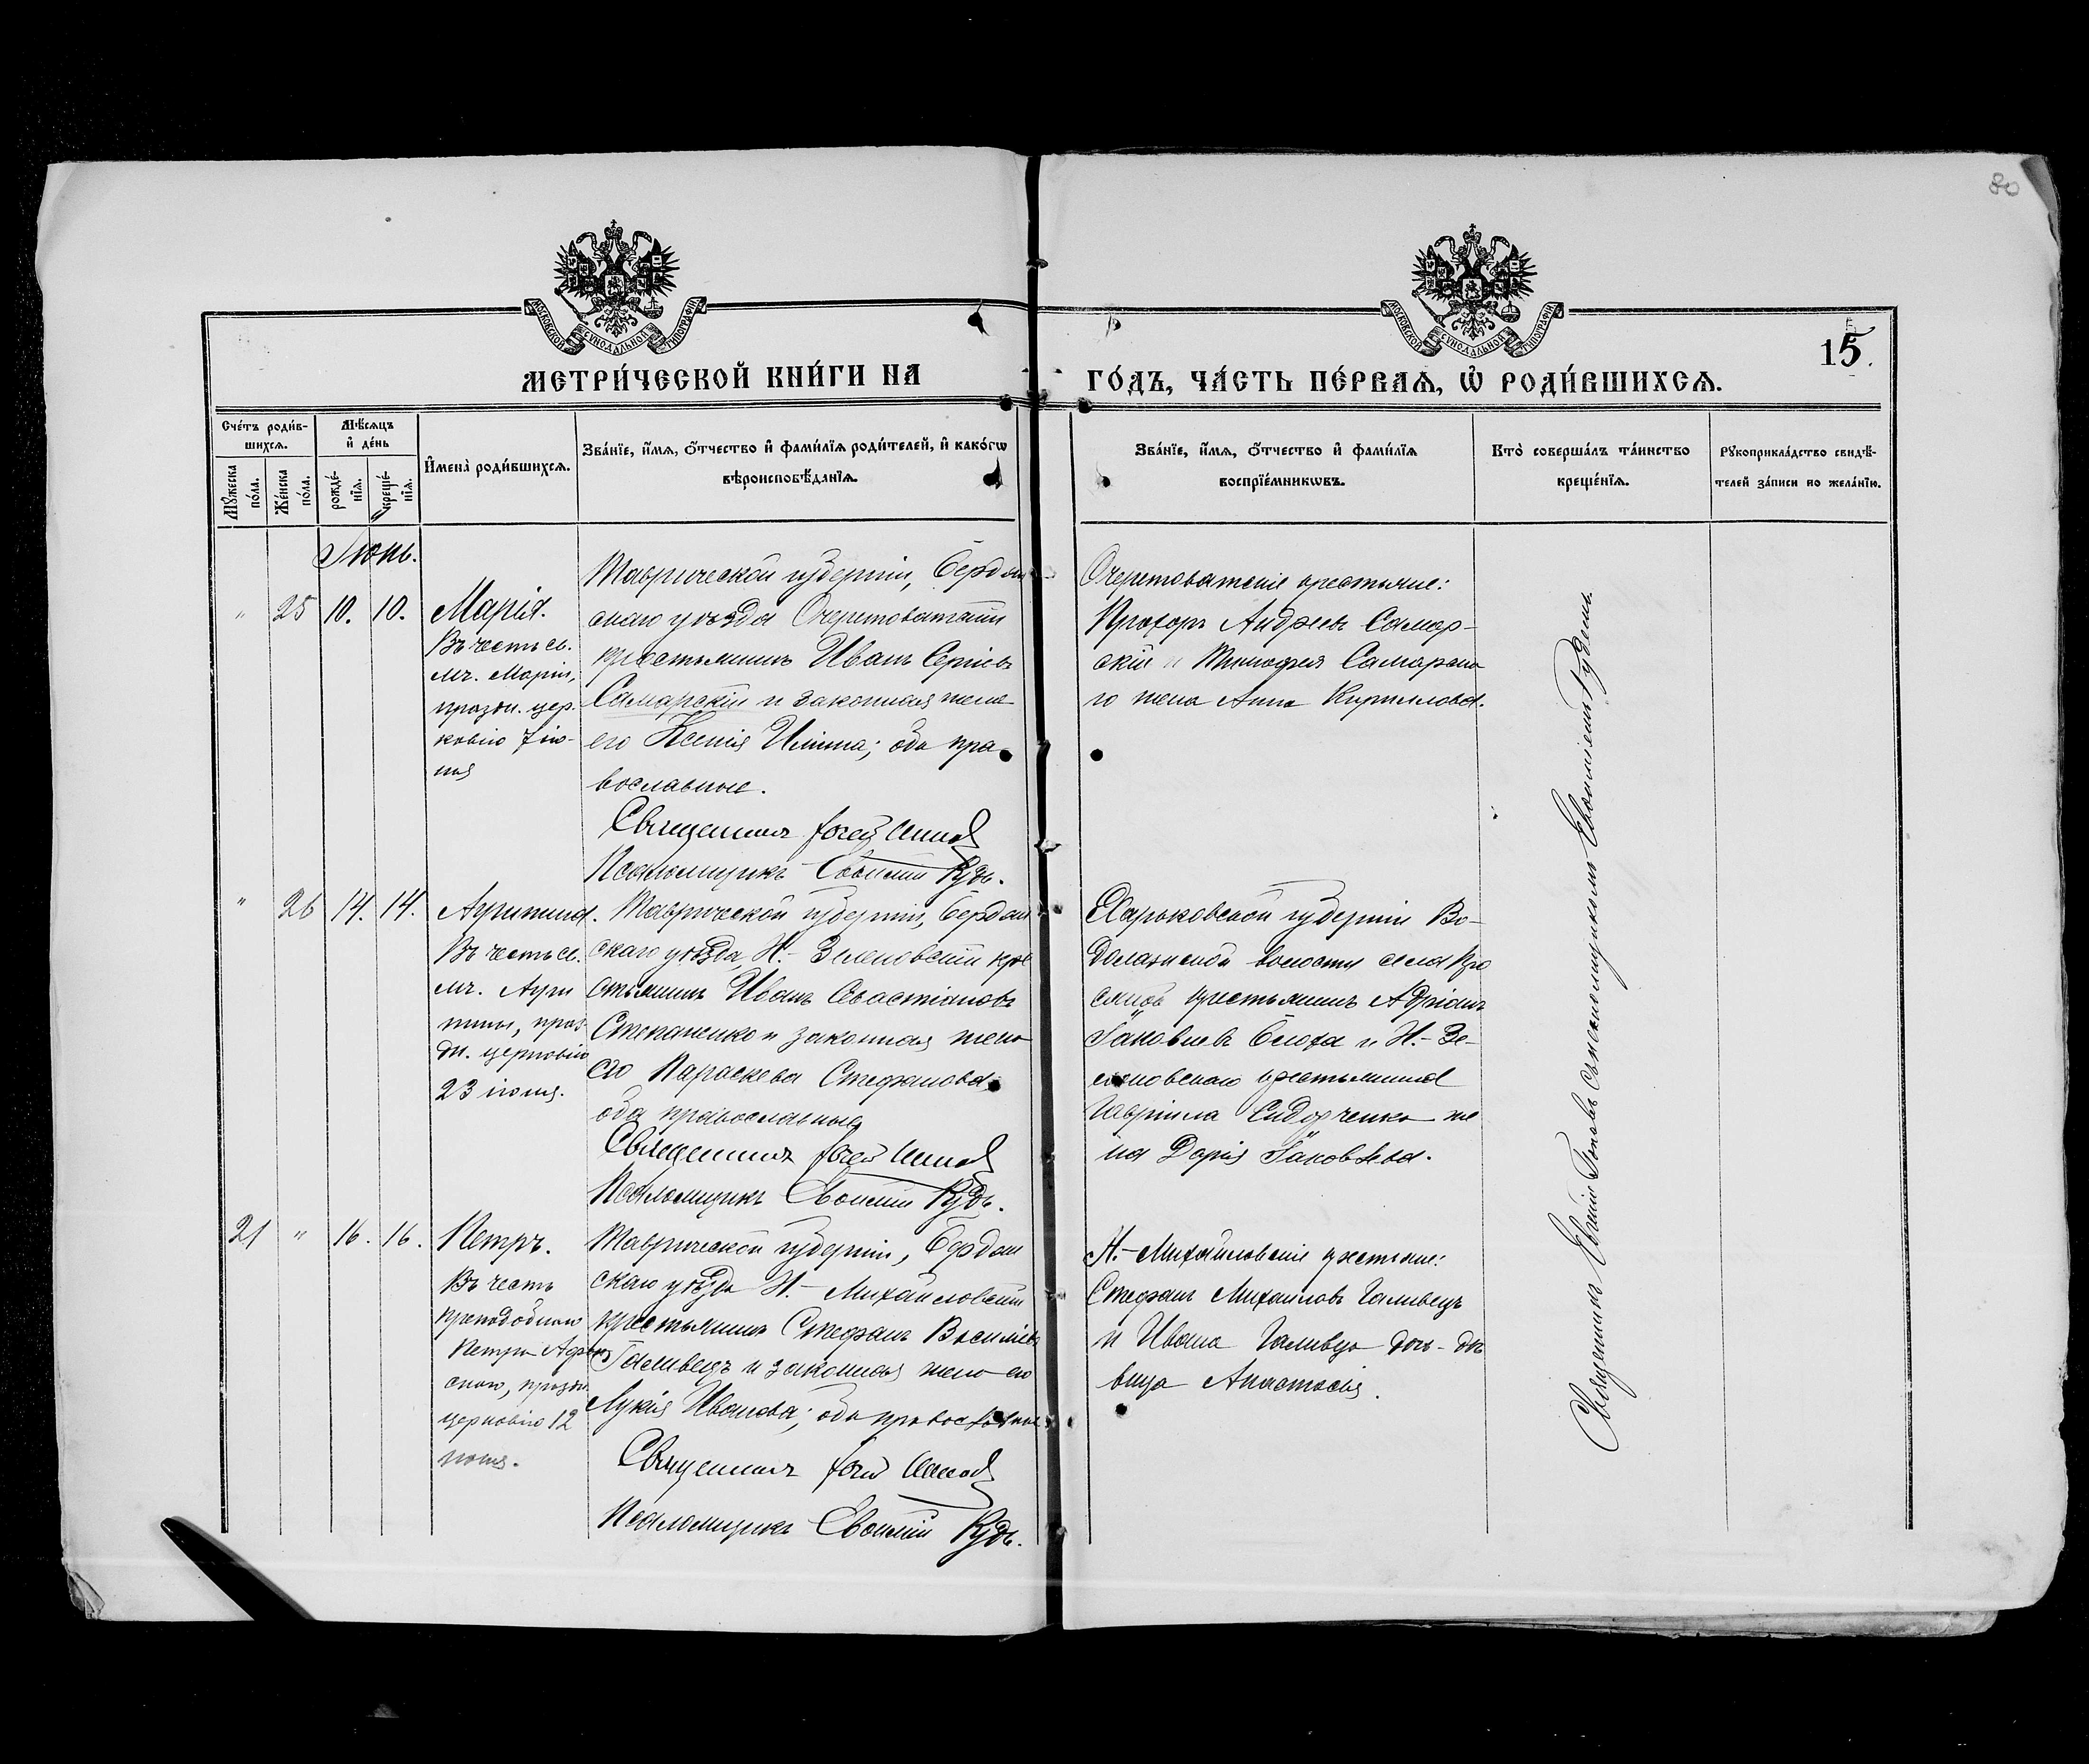 80
МОСКОВСКОЙ СѴНОДАЛЬНОЙ ТИПОГРАФІИ
МОСКОВСКОЙ СѴНОДАЛЬНОЙ ТИПОГРАФІИ
15.
МЕТРИ́ЧЕСКОЙ КНИ́ГИ НА
ГО́ДЪ, ЧА́СТЬ ПЕ́РВАѦ, Ѡ҆ РОДИ́ВШИХСѦ.
Сче́тъ роди́в-
шихсѧ.
Мꙋ́жеска по́ла.
Же́нска по́ла.
Мѣ́сѧцъ
и҆ де́нь
рожде́-
нїѧ.
креще́-
нїѧ.
И҆мена̀ роди́вшихсѧ.
Зва́нїе, и҆́мѧ, ѻ҆́тчество и҆ фами́лїѧ роди́телей, и҆ како́гѡ
вѣроисповѣ́данїѧ.
Зва́нїе, и҆́мѧ, ѻ҆́тчество и҆ фами́лїѧ
воспрїе́мникѡвъ.
Кто̀ соверша́лъ та́инство
креще́нїѧ.
Рꙋкоприкла́дство свидѣ́-
телей за́писи по жела́нїю.
Іюнь.
" 25 10. 10.
Марія.
Въ честь св.
мч. Маріи,
празд. цер-
ковію 7 ію-
ня
Таврической губерніи, Бердян
скаго уѣзда Очеретоватскій
крестьянинъ Иванъ Сергіевъ
Самарскій и законная жена
его Ксенія Ильина; оба пра
вославные.
Священникъ
Псаломщикъ Евѳимій Кудь.
Очеретоватскіе крестьяне:
Прохоръ Андреевъ Самар-
скій и Тимофея Самарска
го жена Анна Кириллова.
" 26 14. 14.
Агрипина.
Въ честь св.
мч. Агри
пины, праз-
дн. церковію
23 іюня.
Таврической губерніи, Бердян
скаго уѣзда, Н.-Зеленовскій кре
стьянинъ Иванъ Севастіановъ
Степаненко и законная жена
его Параскева Стефанова,
оба православные
Священникъ
Псаломщикъ Евѳимій Кудь.
Харьковской губерніи Во-
долажской волости села
крестьянинъ Адріанъ
Іаковлевъ и Н.-Зе-
леновскаго крестьянина
Гавріила Сидорченко же
на Дарія Іаковлева.
21 " 16. 16.
Петръ.
Въ честь
преподобнаго
Петра Афон
скаго, праздн.
церковію 12
іюня.
Таврической губерніи, Бердян
скаго уѣзда Н.-Михайловскій
крестьянинъ Стефанъ Василіевъ
Галывецъ и законная жена его
Лукія Иванова; оба православные
Священникъ
Псаломщикъ Евѳимій Кудь.
Н.-Михайловскіе крестьяне:
Стефанъ Михаиловъ Галывецъ
и Ивана Галывца дочь-дѣ
вица Анастасія.
Священникъ Поповъ съ псаломщикомъ Евѳиміемъ Кудемъ.